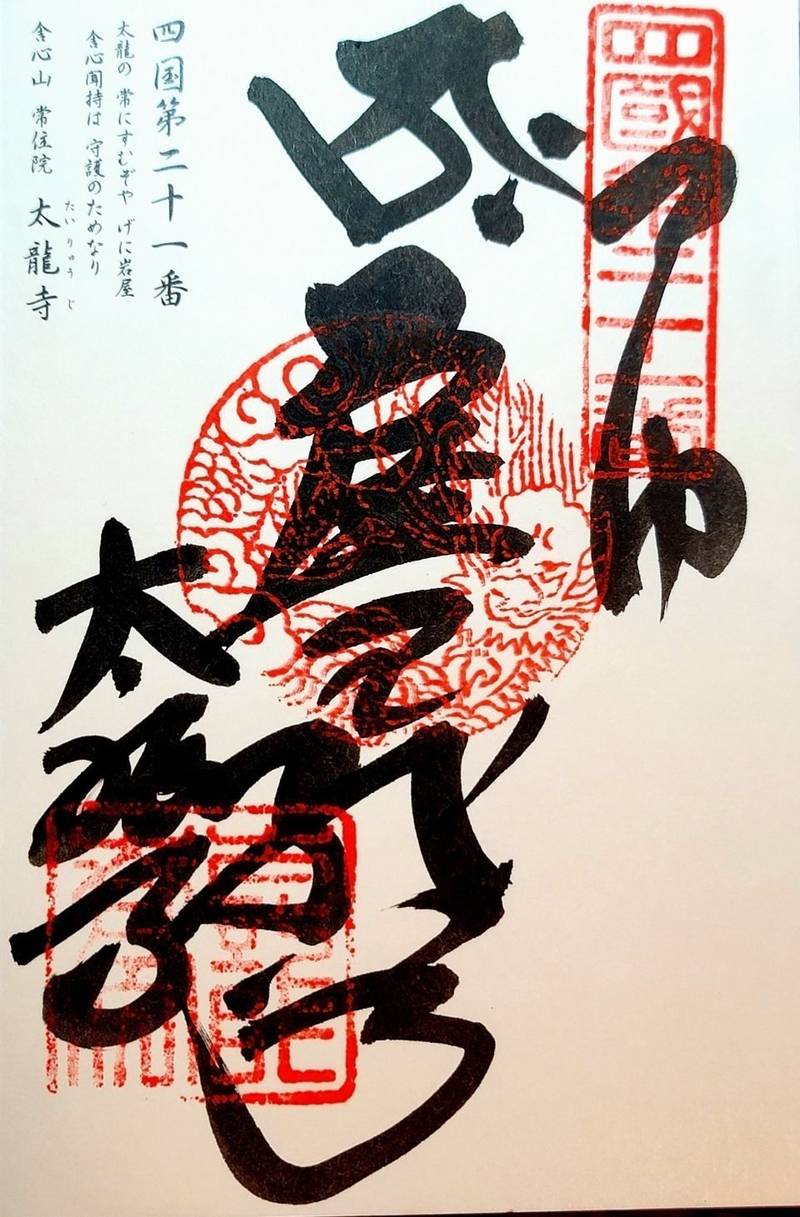 四國第二十一番
虚空蔵
太龍寺
四国第二十一番
太龍の 常にすむぞや げに岩屋
舎心聞持は 守護のためなり
舎心山 常住院 太龍寺
たいりゅうじ